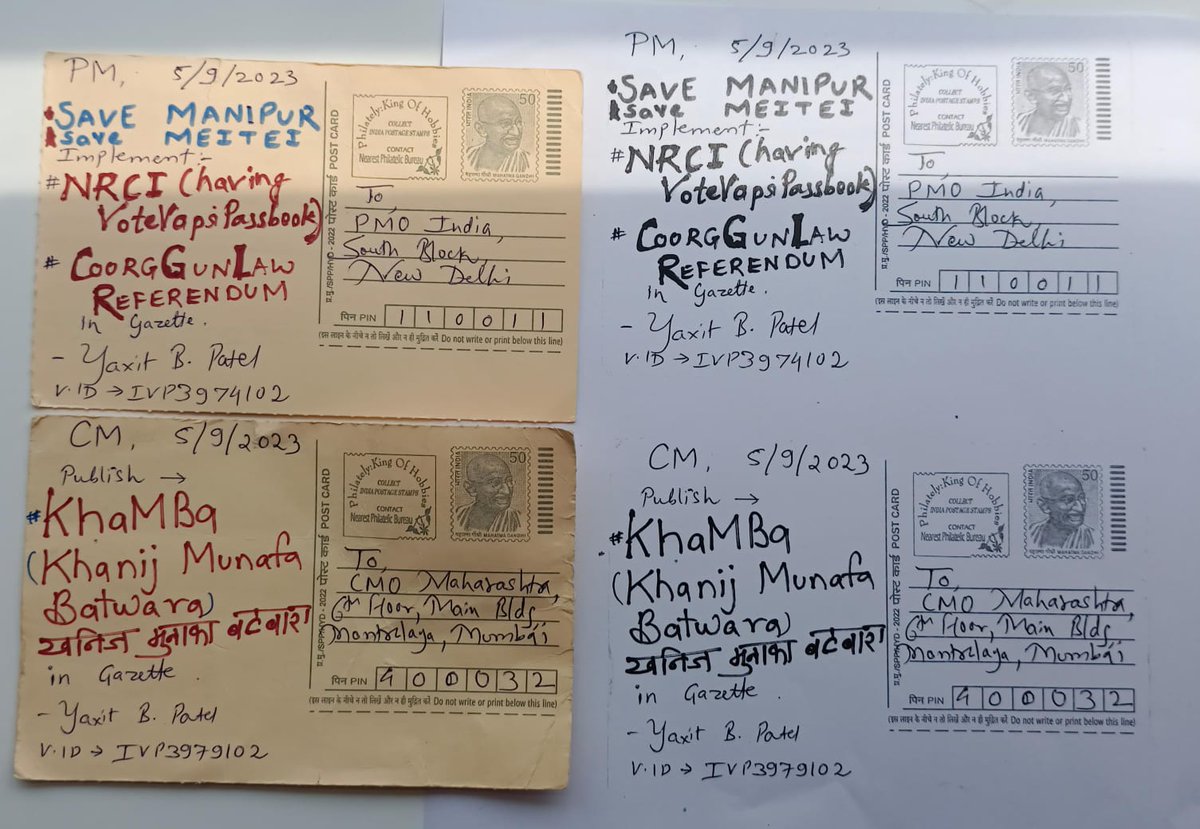 PM, 5/9/2023
*SAVE MANIPUR
*Save MEITEI
Implement:-
#NRCI (having
VoteVapsiPassbook)
# COORGGUNLAW
REFERENDUM
in Gazette.
- Yaxit B. Patel
V.ID → IVP3974102
प्र.मु./SPP/HYD - 2022 पोस्ट कार्ड POST CARD
Philately: King Of Hobbies
COLLECT
INDIA POSTAGE STAMPS
CONTACT
Nearest Philatelic Bureau
भारत INDIA
50
महात्मा गाँधी MAHATMA GANDHI
To,
PMO India,
South Block,
New Delhi
पिन PIN 110011
(इस लाइन के नीचे न तो लिखें और न ही मुद्रित करें Do not write or print below this line)
CM, 5/9/2023
Publish →
#KhaMBa
(Khanij Munafa
Batwara)
खनिज मुनाफा बटवारा
in Gazette.
- Yaxit B. Patel
V.ID → IVP3979102
प्र.मु./SPP/HYD - 2022 पोस्ट कार्ड POST CARD
Philately: King Of Hobbies
COLLECT
INDIA POSTAGE STAMPS
CONTACT
Nearest Philatelic Bureau
भारत INDIA
50
महात्मा गाँधी MAHATMA GANDHI
To,
CMO Maharashtra,
6th Floor, Main Bldg,
Mantralaya, Mumbai
पिन PIN 400032
(इस लाइन के नीचे न तो लिखें और न ही मुद्रित करें Do not write or print below this line)
PM, 5/9/2023
*SAVE MANIPUR
*Save MEITEI
Implement:-
#NRCI (having
VoteVapsiPassbook)
# COORGGUNLAW
REFERENDUM
in Gazette.
- Yaxit B. Patel
V.ID → IVP3974102
प्र.मु./SPP/HYD - 2022 पोस्ट कार्ड POST CARD
Philately: King Of Hobbies
COLLECT
INDIA POSTAGE STAMPS
CONTACT
Nearest Philatelic Bureau
भारत INDIA
50
महात्मा गाँधी MAHATMA GANDHI
To,
PMO India,
South Block,
New Delhi
पिन PIN 110011
(इस लाइन के नीचे न तो लिखें और न ही मुद्रित करें Do not write or print below this line)
CM, 5/9/2023
Publish →
#KhaMBa
(Khanij Munafa
Batwara)
खनिज मुनाफा बटवारा
in Gazette.
- Yaxit B. Patel
V.ID → IVP3979102
प्र.मु./SPP/HYD - 2022 पोस्ट कार्ड POST CARD
Philately: King Of Hobbies
COLLECT
INDIA POSTAGE STAMPS
CONTACT
Nearest Philatelic Bureau
भारत INDIA
50
महात्मा गाँधी MAHATMA GANDHI
To,
CMO Maharashtra,
6th Floor, Main Bldg,
Mantralaya, Mumbai
पिन PIN 400032
(इस लाइन के नीचे न तो लिखें और न ही मुद्रित करें Do not write or print below this line)